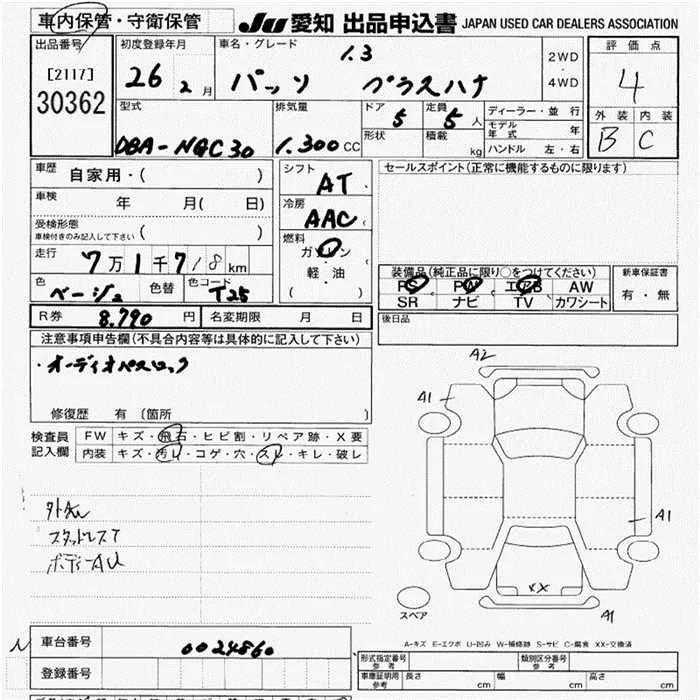 車内保管・守衛保管 JU 愛知 出品申込書 JAPAN USED CAR DEALERS ASSOCIATION
出品番号 初度登録年月 車名・グレード 1.3 2WD ・ 4WD 評価点
[2117] 26 2月 パッソ プラスハナ 4
30362
型式 排気量 ドア 5 定員 5人 ディーラー・並行 外装 内装
モデル年式 年
DBA-NGC30 1.300CC 形状 積載 kg ハンドル 左・右 B C
車歴 自家用・( ) シフト AT セールスポイント(正常に機能するものに限ります)
車検 年 月( 日) 冷房 AAC
受検形態 ( )
車検付きのみ記入して下さい
燃料 ガソリン
走行 7万1千718km 軽・油 装備品(純正品に限り○をつけてください) 新車保証書
色 ベージュ 色替 色コード T25 ( ) PS PW エアB AW 有・無
SR ナビ TV カワシート
R券 8.790円 名変期限 月 日 後日品
注意事項申告欄(不具合内容等は具体的に記入して下さい)
・オーディオパスロック
A2
A1
修復歴 有 (箇所 )
検査員 FW キズ・飛石・ヒビ割・リペア跡・X要
記入欄 内装 キズ・汚レ・コゲ・穴・スレ・キレ・破レ
スタッドレスT
A1
ボディーAU
XX
スペア A1
A-キズ E-エクボ U-凹み W-補修跡 S-サビ C-腐食 XX-交換済
車台番号 0024860 形式指定番号 参考 類別区分番号 参考
登録番号 車庫証明用 参考 長さ cm 幅 cm 高さ cm